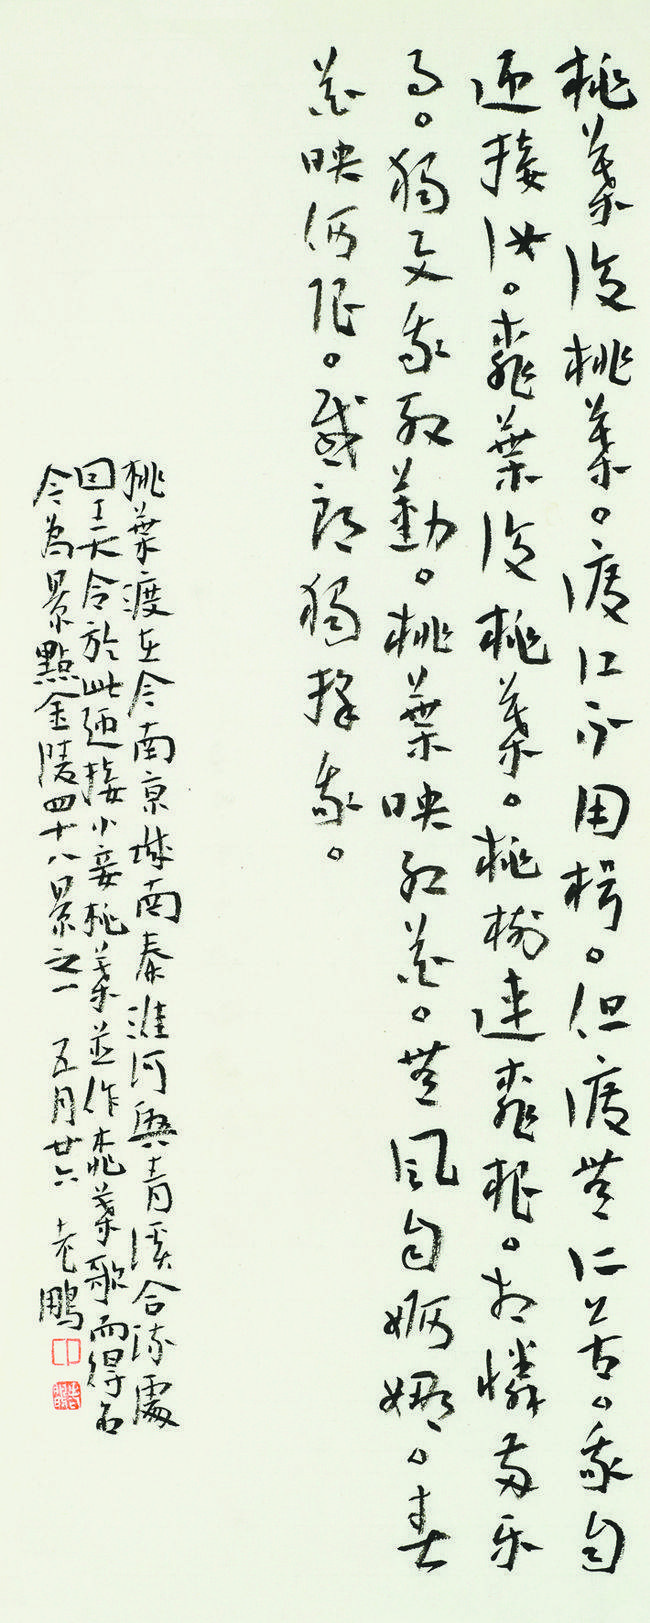 桃葉復桃葉。渡江不用楫。但渡無所苦。我自
迎接汝。桃葉復桃葉。桃樹連桃根。相憐兩樂
事。獨我殷勤。桃葉映紅花。無風自婀娜。春
花映何限。感郎獨採我。
桃葉渡在今南京城南秦淮河與青溪合流處
因王大令於此迎接小妾桃葉並作桃葉歌而得名
今為景點金陵四十八景之一 五月廿六 老鵬